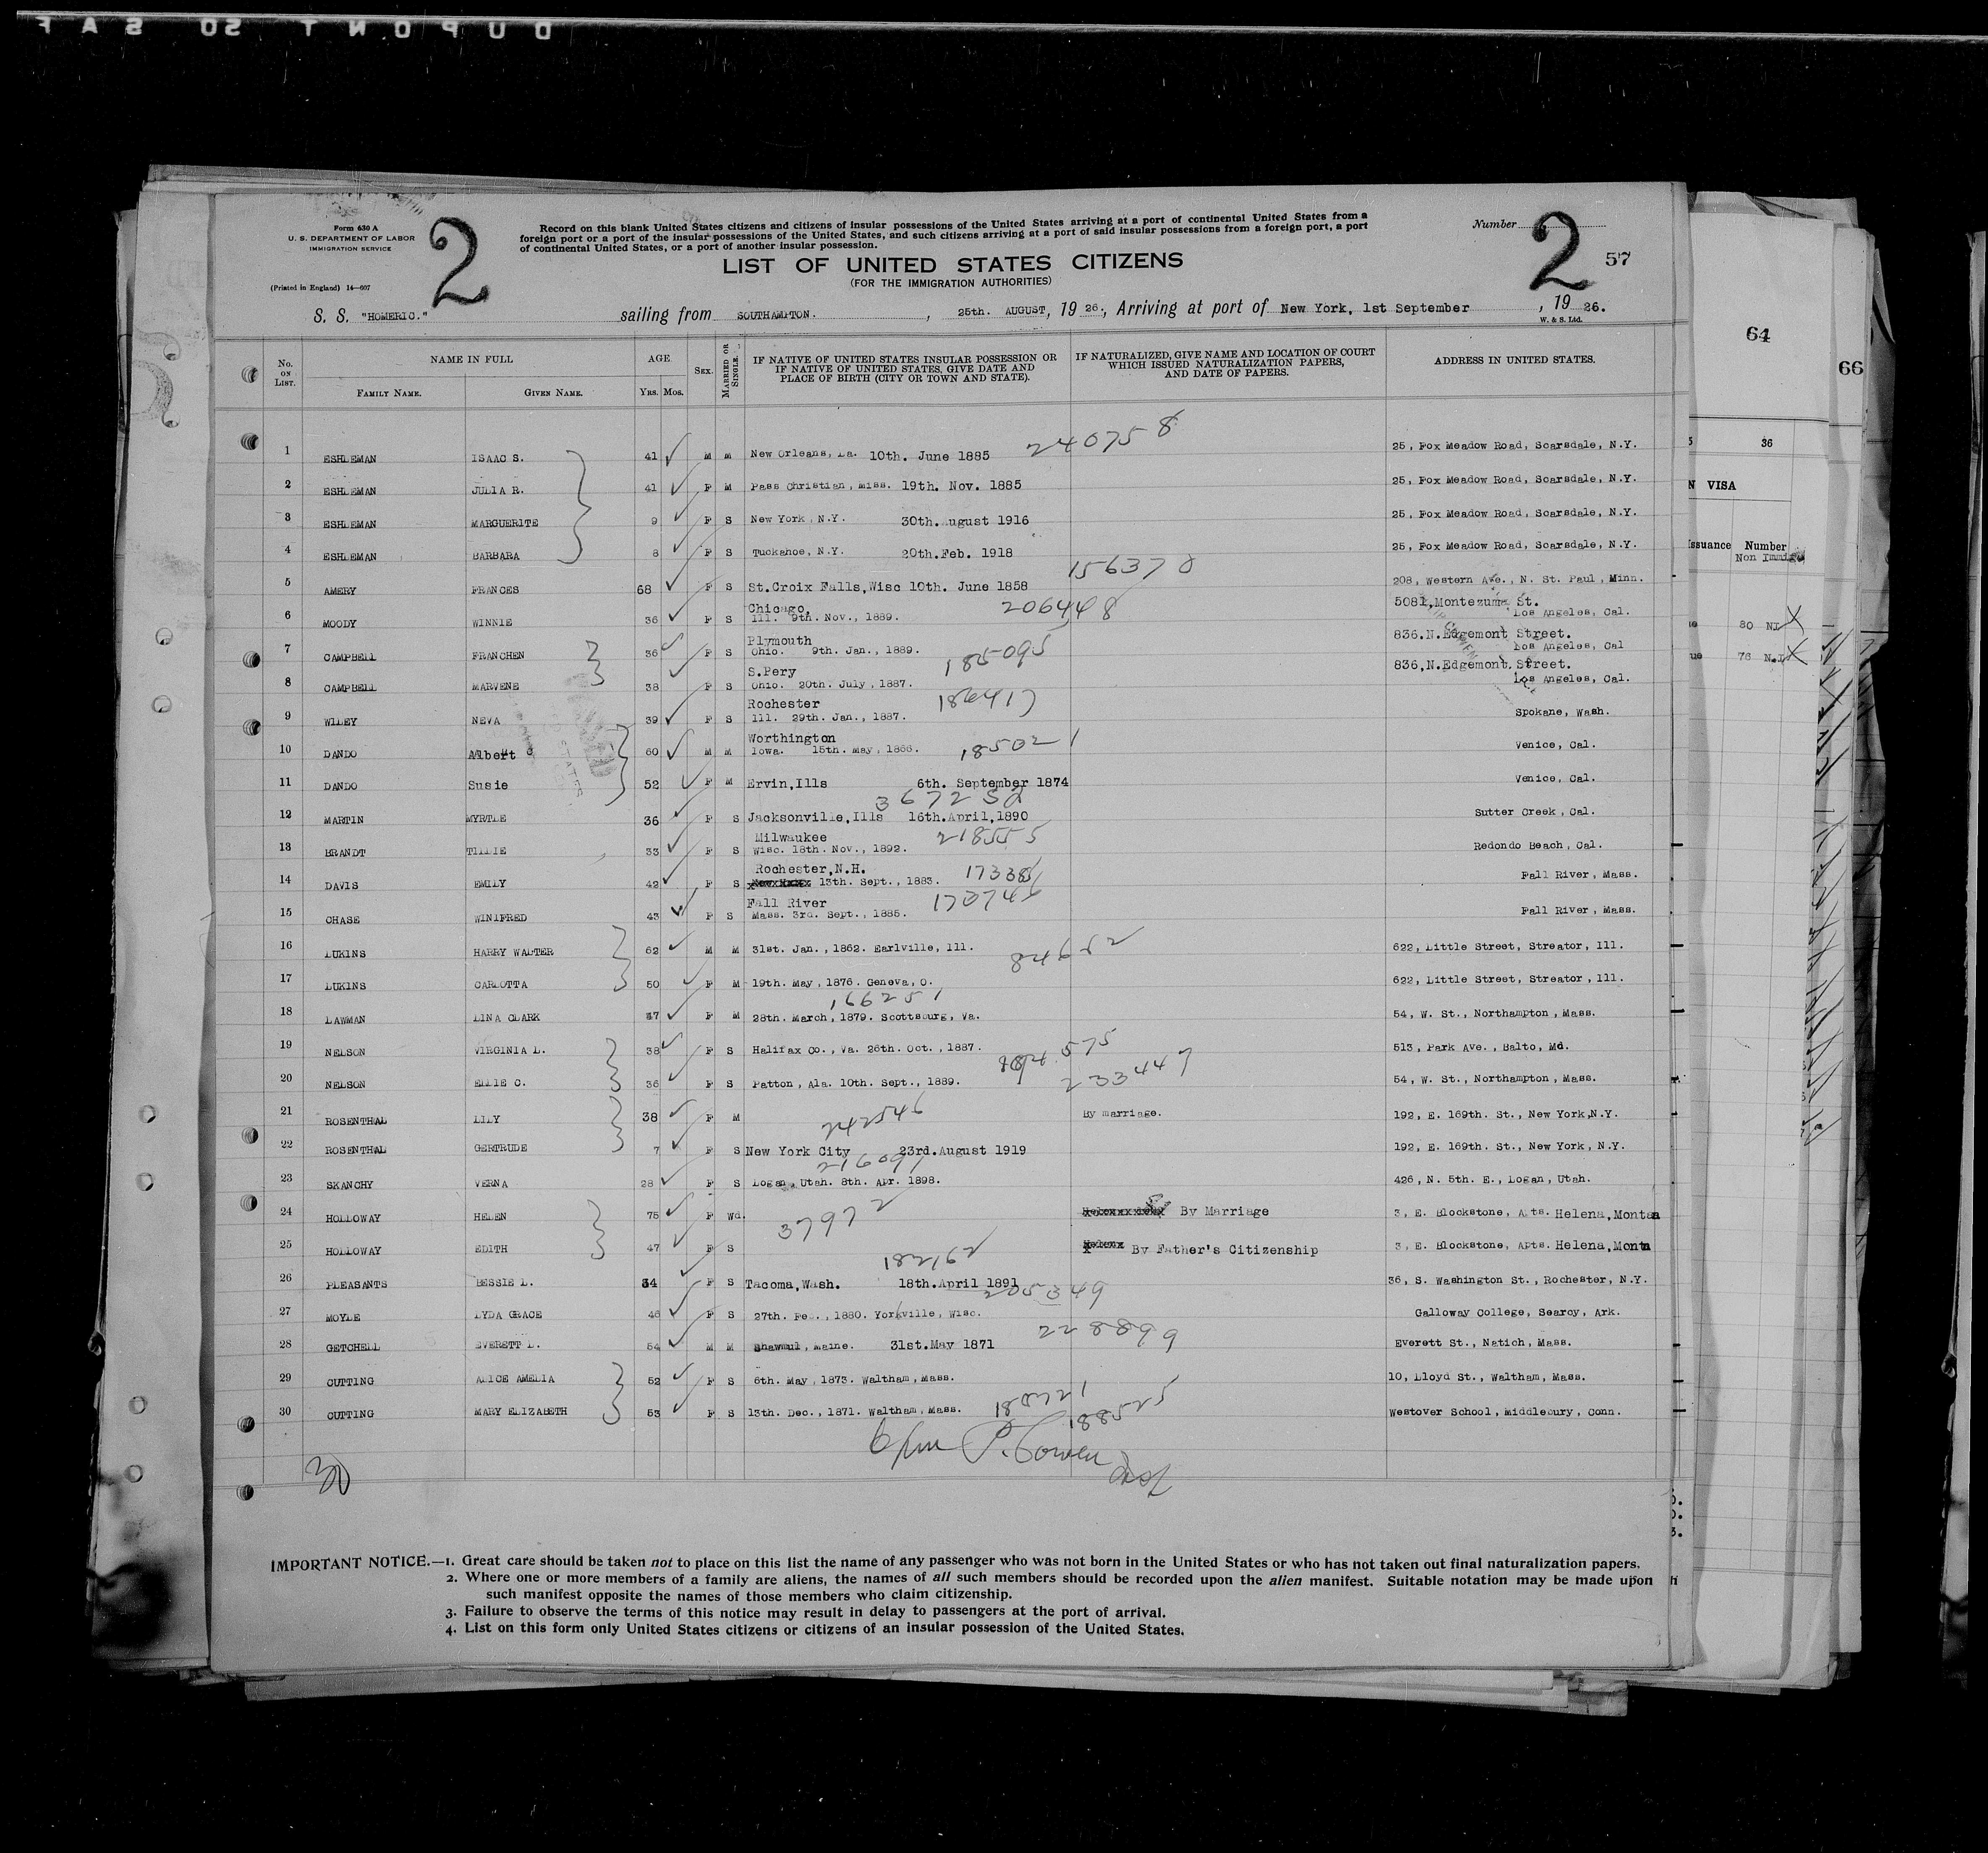 DUPONT SO SAF
Form 630 A
U. S. DEPARTMENT OF LABOR
IMMIGRATION SERVICE
(Printed in England) 14—607
2
Record on this blank United States citizens and citizens of insular possessions of the United States arriving at a port of continental United States from a
foreign port or a port of the insular possessions of the United States, and such citizens arriving at a port of said insular possessions from a foreign port, a port
of continental United States, or a port of another insular possession.
Number 2 57
LIST OF UNITED STATES CITIZENS
(FOR THE IMMIGRATION AUTHORITIES)
S. S. "HOMERIC." sailing from SOUTHAMPTON. , 25th. AUGUST, 19 26., Arriving at port of New York, 1st September , 19 26.
W. & S. Ltd.
No. ON LIST. NAME IN FULL AGE SEX. MARRIED OR SINGLE. IF NATIVE OF UNITED STATES INSULAR POSSESSION OR IF NATIVE OF UNITED STATES, GIVE DATE AND PLACE OF BIRTH (CITY OR TOWN AND STATE). IF NATURALIZED, GIVE NAME AND LOCATION OF COURT WHICH ISSUED NATURALIZATION PAPERS, AND DATE OF PAPERS. ADDRESS IN UNITED STATES.
FAMILY NAME. GIVEN NAME. YRS. MOS.
1 ESHLEMAN ISAAC S. 41 M M New Orleans, La. 10th. June 1885 240758 25, Fox Meadow Road, Scarsdale, N.Y.
2 ESHLEMAN JULIA R. 41 F M Pass Christian, Miss. 19th. Nov. 1885 25, Fox Meadow Road, Scarsdale, N.Y.
3 ESHLEMAN MARGUERITE 9 F S New York, N.Y. 30th.August 1916 25, Fox Meadow Road, Scarsdale, N.Y.
4 ESHLEMAN BARBARA 8 F S Tuckahoe, N.Y. 20th.Feb. 1918 25, Fox Meadow Road, Scarsdale, N.Y.
5 AMERY FRANCES 68 F S St.Croix Falls,Wisc 10th. June 1858 156378 208, Western Ave., N. St. Paul, Minn.
6 MOODY WINNIE 36 F S Chicago, Ill. 9th. Nov., 1889. 206448 5081,Montezuma St. Los Angeles, Cal.
7 CAMPBELL FRANCHEN 36 F S Plymouth Ohio. 9th. Jan., 1889. 185095 836.N.Edgemont Street. Los Angeles, Cal
8 CAMPBELL MARVENE 38 F S S.Pery Ohio. 20th. July, 1887. 836,N.Edgemont Street. Los Angeles, Cal.
9 WILEY NEVA 39 F S Rochester Ill. 29th. Jan., 1887. 186417 Spokane, Wash.
10 DANDO Albert 60 M M Worthington Iowa. 15th. May, 1866. 185021 Venice, Cal.
11 DANDO Susie 52 F M Ervin,Ills 6th. September 1874 Venice, Cal.
12 MARTIN MYRTLE 36 F S Jacksonville,Ills 16th.April,1890 Sutter Creek, Cal.
13 BRANDT TILLIE 33 F S Milwaukee Wisc. 18th. Nov., 1892. 218555 Redondo Beach, Cal.
14 DAVIS EMILY 42 F S Rochester,N.H. 13th. Sept., 1883. Fall River, Mass.
15 CHASE WINIFRED 43 F S Fall River Mass. 3rd. Sept., 1885. 170746 Fall River, Mass.
16 LUKINS HARRY WALTER 62 M M 31st. Jan., 1862. Earlville, Ill. 84652 622, Little Street, Streator, Ill.
17 LUKINS CARLOTTA 50 F M 19th. May, 1876. Geneva, O. 622, Little Street, Streator, Ill.
18 LAWMAN LINA CLARK 47 F M 28th. March, 1879. Scottsburg, Va. 166251 54, W. St., Northampton, Mass.
19 NELSON VIRGINIA L. 38 F S Halifax Co., Va. 26th. Oct., 1887. 513, Park Ave., Balto, Md.
20 NELSON ELLIE C. 36 F S Patton, Ala. 10th. Sept., 1889. 233447 54, W. St., Northampton, Mass.
21 ROSENTHAL LILY 38 F M 242546 By marriage. 192, E. 169th. St., New York,N.Y.
22 ROSENTHAL GERTRUDE 7 F S New York City 23rd.August 1919 192, E. 169th. St., New York, N.Y.
23 SKANCHY VERNA 28 F S Logan, Utah. 8th. Apr. 1898. 216091 426, N. 5th. E., Logan, Utah.
24 HOLLOWAY HELEN 75 F Wd. 37972 By Marriage 3, E. Blockstone, Apts. Helena,Montaa
25 HOLLOWAY EDITH 47 F S By Father's Citizenship 3, E. Blockstone, Apts. Helena,Monta
26 PLEASANTS BESSIE L. 34 F S Tacoma,Wash. 18th.April 1891 182162 36, S. Washington St., Rochester, N.Y.
27 MOYLE LYDA GRACE 46 F S 27th. Feb., 1880. Yorkville, Wisc. 205349 Galloway College, Searcy, Ark.
28 GETCHELL EVERETT L. 54 M M Shawmul, Maine. 31st.May 1871 228899 Everett St., Natich, Mass.
29 CUTTING ALICE AMELIA 52 F S 6th. May, 1873. Waltham, Mass. 10, Lloyd St., Waltham, Mass.
30 CUTTING MARY ELIZABETH 53 F S 13th. Dec., 1871. Waltham, Mass. 188525 Westover School, Middlebury, Conn.
30
IMPORTANT NOTICE.—1. Great care should be taken not to place on this list the name of any passenger who was not born in the United States or who has not taken out final naturalization papers.
2. Where one or more members of a family are aliens, the names of all such members should be recorded upon the alien manifest. Suitable notation may be made upon
such manifest opposite the names of those members who claim citizenship.
3. Failure to observe the terms of this notice may result in delay to passengers at the port of arrival.
4. List on this form only United States citizens or citizens of an insular possession of the United States.
64
66
36
N VISA
Issuance Number
Non Immig
80 NI
76 N.I